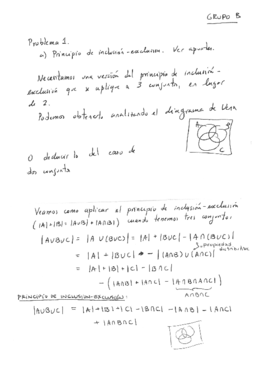 GRUPO B
Problema 1.
a) Principio de inclusión-exclusión. Ver apuntes.
Necesitamos una versión del principio de inclusión-
exclusión que se aplique a 3 conjuntos, en lugar
de 2.
Podemos obtenerlo analizando el diagrama de Venn
A B
C
O deducirlo del caso de
dos conjuntos
Veamos como aplicar el principio de inclusión-exclusión
(|A|+|B| = |A∪B| + |A∩B|) cuando tenemos tres conjuntos:
|A∪B∪C| = |A ∪ (B∪C)| = |A| + |B∪C| - |A∩(B∪C)|
propiedad
distributiva
= |A| + |B∪C| - |(A∩B) ∪ (A∩C)|
= |A| + |B| + |C| - |B∩C|
- (|A∩B| + |A∩C| - |A∩B∩A∩C|)
A∩B∩C
PRINCIPIO DE INCLUSION-EXCLUSION:
|A∪B∪C| = |A| + |B| + |C| - |B∩C| - |A∩B| - |A∩C|
+ |A∩B∩C|